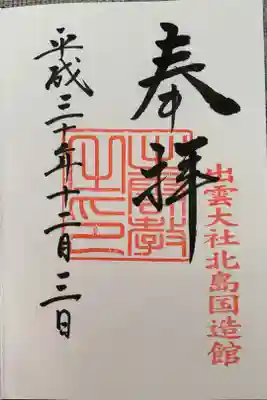 奉拝
出雲大社北島国造館
平成三十年十二月三日